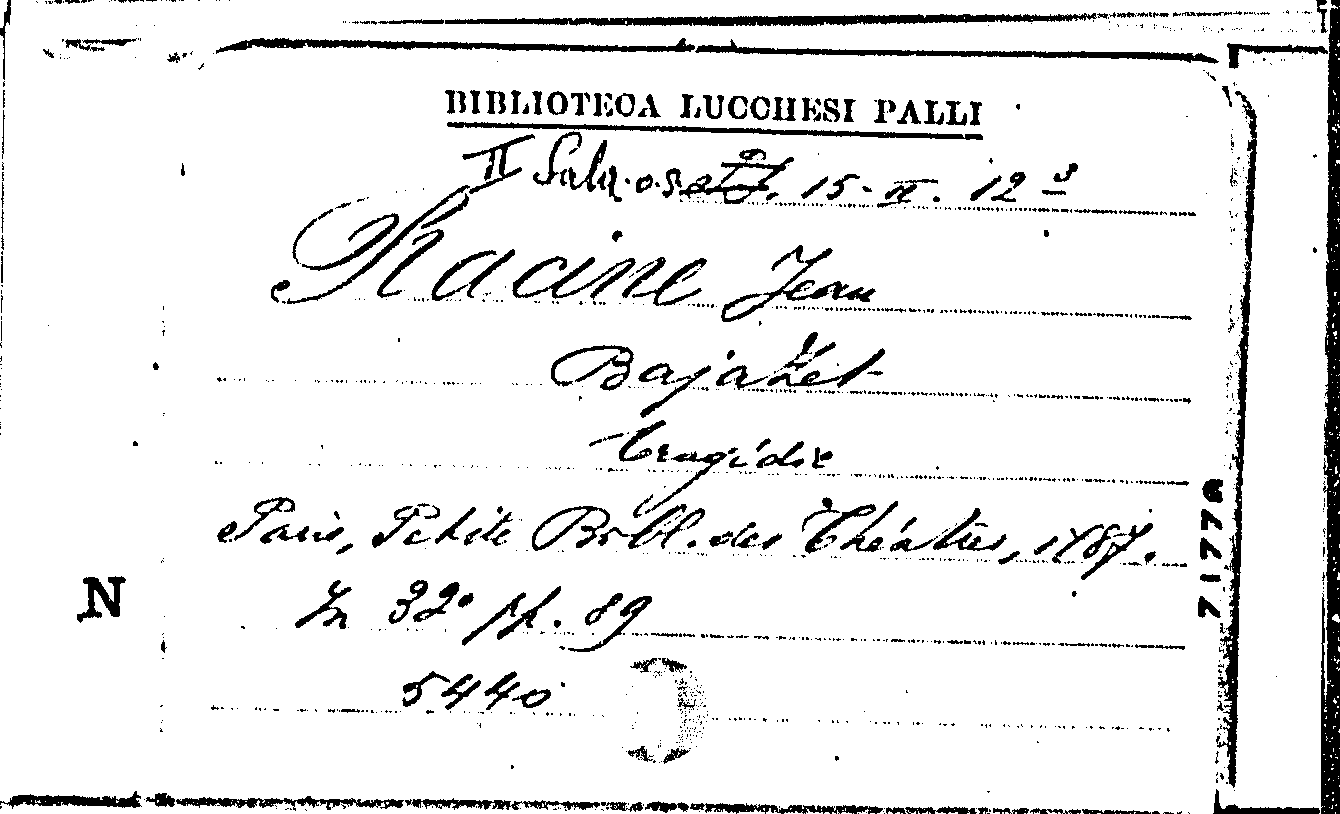 BIBLIOTECA LUCCHESI PALLI
II Sala. 15-II. 12 3
Racine Jean
Bajazet
tragédie
Paris, Petite Bibl. des Théatres, 1787.
In 32° pp. 89
5440
N
71776